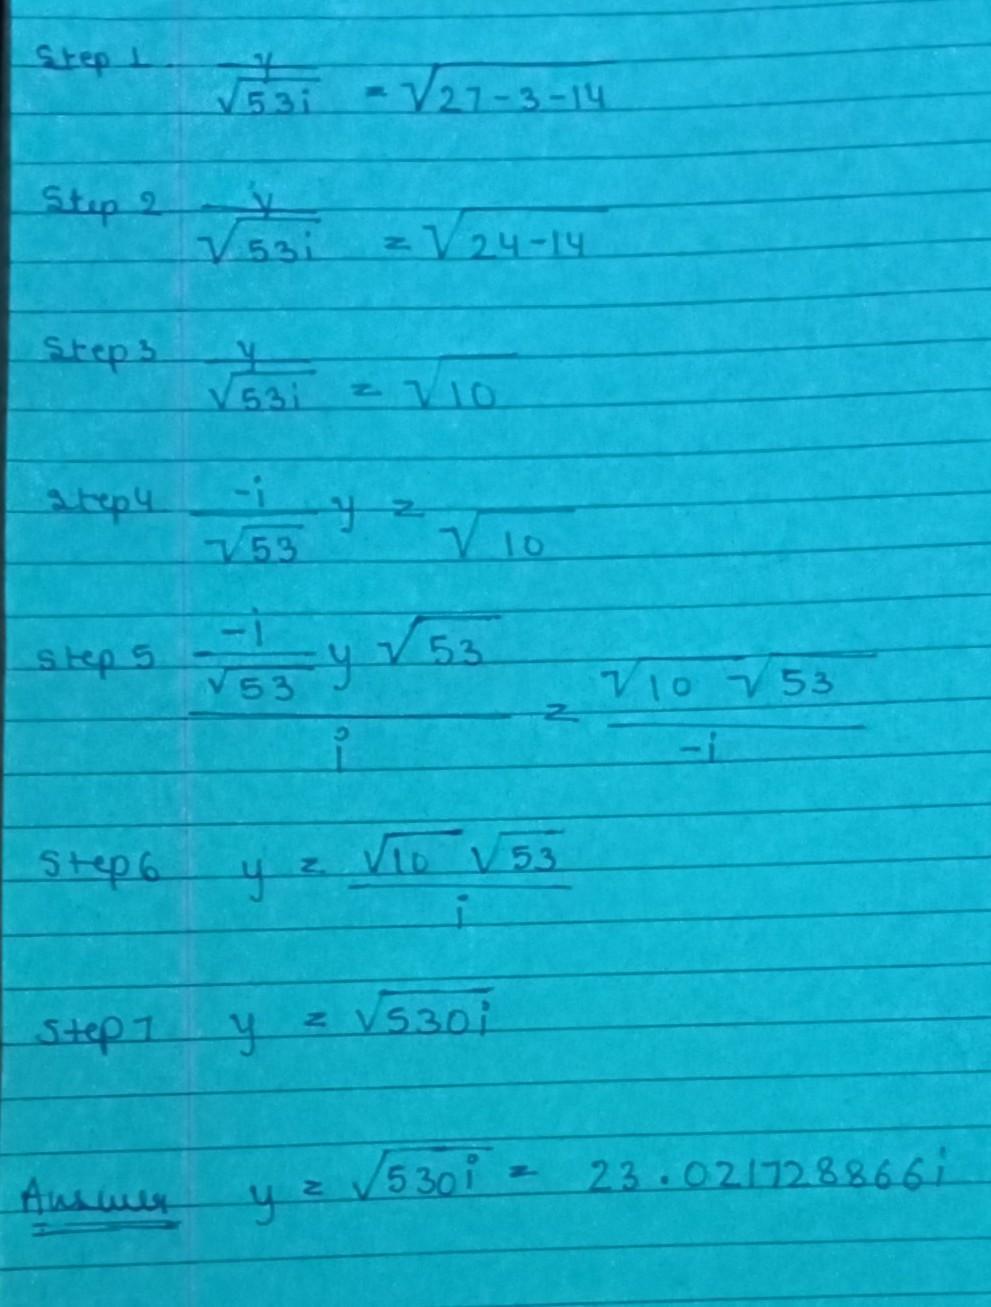 Step 1 y/√53i = √27-3-14
Step 2 y/√53i = √24-14
Step 3 y/√53i = √10
Step 4 -i/√53 y = √10
Step 5 (-i/√53 y √53)/i = (√10 √53)/-i
Step 6 y = (√10 √53)/i
Step 7 y = √530i
Answer y = √530i = 23.021728866i